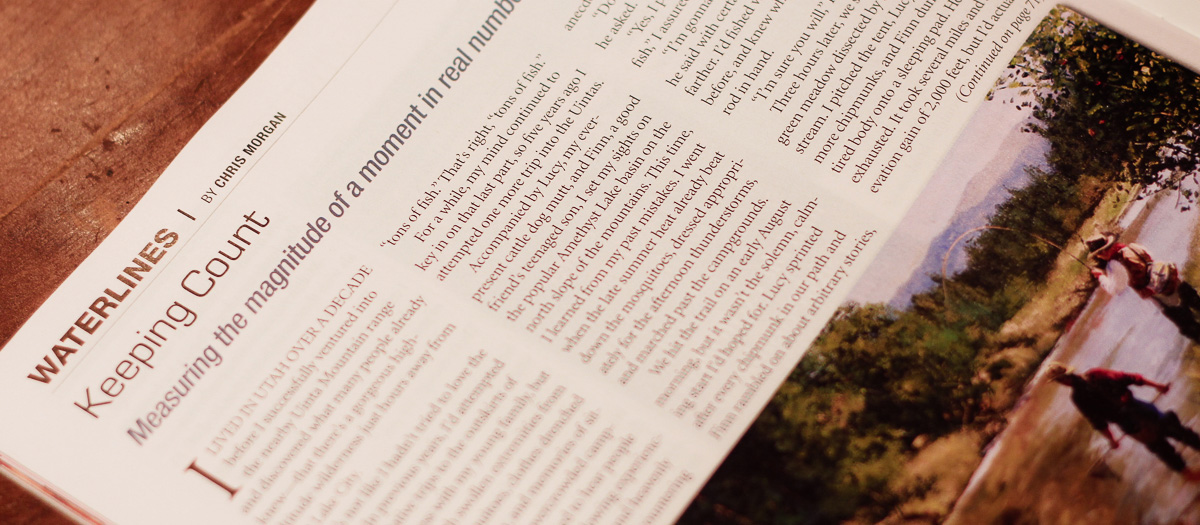 WATERLINES | BY CHRIS MORGAN
Keeping Count
Measuring the magnitude of a moment in real numbe
I LIVED IN UTAH OVER A DECADE
before I successfully ventured into
the nearby Uinta Mountain range
and discovered what many people already
that there's a gorgeous high-
wilderness just hours away from
Lake City.
like I hadn't tried to love the
previous years, I'd attempted
trips to the outskirts of
with my young family, but
swollen extremities from
"tons of fish." That's right, "tons of fish."
For a while, my mind continued to
key in on that last part, so five years ago I
attempted one more trip into the Uintas.
Accompanied by Lucy, my ever-
present cattle dog mutt, and Finn, a good
friend's teenaged son, I set my sights on
the popular Amethyst Lake basin on the
north slope of the mountains. This time,
I learned from my past mistakes. I went
when the late summer heat already beat
down the mosquitoes, dressed appropri-
ately for the afternoon thunderstorms,
and marched past the campgrounds.
We hit the trail on an early August
morning, but it wasn't the solemn, calm-
ing start I'd hoped for. Lucy sprinted
after every chipmunk in our path and
Finn rambled on about arbitrary stories,
anecd
"Do
he asked.
"Yes, I p
fish," I assure
"I'm gonna
he said with cert
farther. I'd fished
before, and knew wh
rod in hand.
"I'm sure you will"
Three hours later, we s
green meadow dissected by
stream. I pitched the tent, Luc
more chipmunks, and Finn dum
tired body onto a sleeping pad. He
exhausted. It took several miles and
evation gain of 2,000 feet, but I'd actu
(Continued on page 7